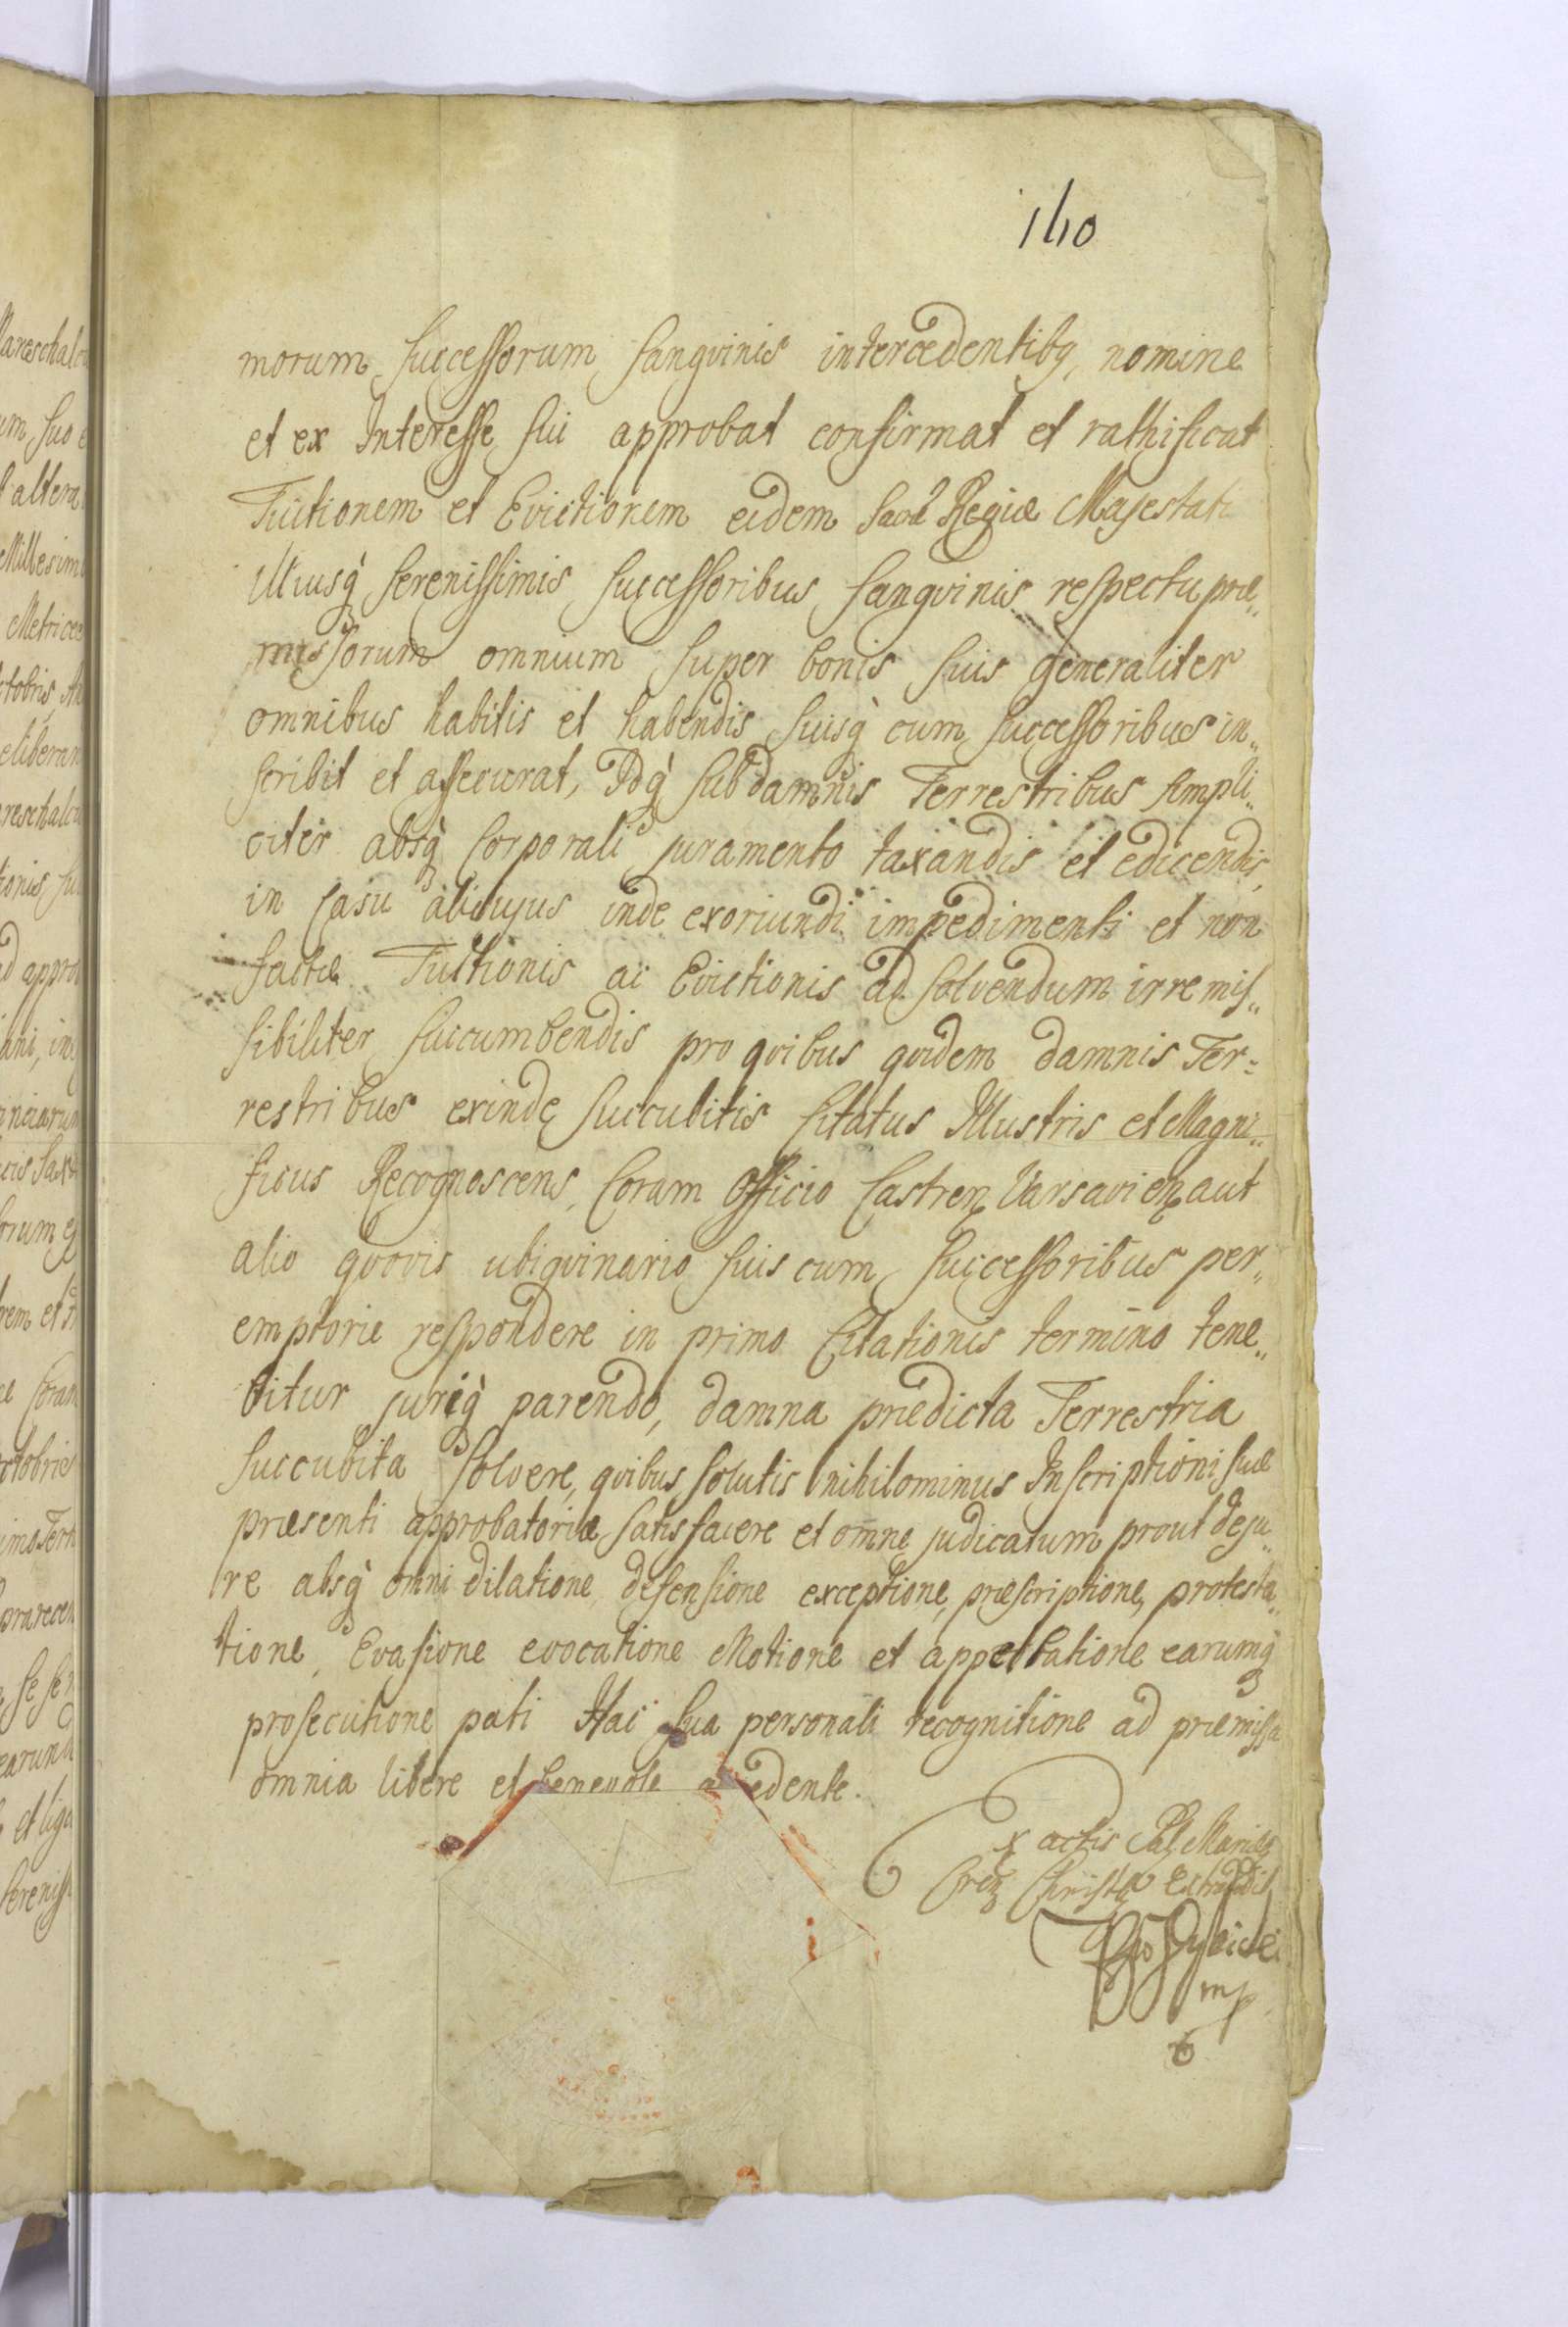 140
morum Successorum Sangvinis intercedentibq, nomine
et ex Interesse sui approbat confirmat et rathificat
Tuitionem et Evictionem eidem Sacræ Regiæ Majestati
Illiusq̀ Serenissimis Successoribus Sangvinis respectu præ„
missorum omnium super bonis suis generaliter
omnibus habitis et habendis suisq̀ cum Successoribus in„
scribit et assecurat, Idq̀ sub damnis Terrestribus simpli„
citer absq̀ Corporali juramento taxandis et edicendis,
in Casu alicujus inde exoriundi impedimenti et non
factæ Tuitionis ac Evictionis ad solvendum irremis„
sibiliter succumbendis pro qvibus qvidem damnis Ter=
restribus exinde succubitis Citatus Illustris et Magni„
ficus Recognoscens, Coram Officio Castren Varsavien aut
alio qvovis ubiqvinario suis cum Successoribus per„
emptorie respondere in primo Citationis termino tene„
bitur juriq̀ parendo, damna prædicta Terrestria
succubita solvere, qvibus solutis nihilominus Inscriptioni suæ
præsenti approbatoriæ satisfacere et omne judicatum prout de ju„
re absq̀ omni dilatione, defensione exceptione, præscriptione, protesta„
tione, Evasione evocatione Motione et appellatione earumq̀
prosecutione pati Hac sua personali recognitione ad præmissa
omnia libere et benevole accedente.
Ex actis Pal Marien
Extradit
mp